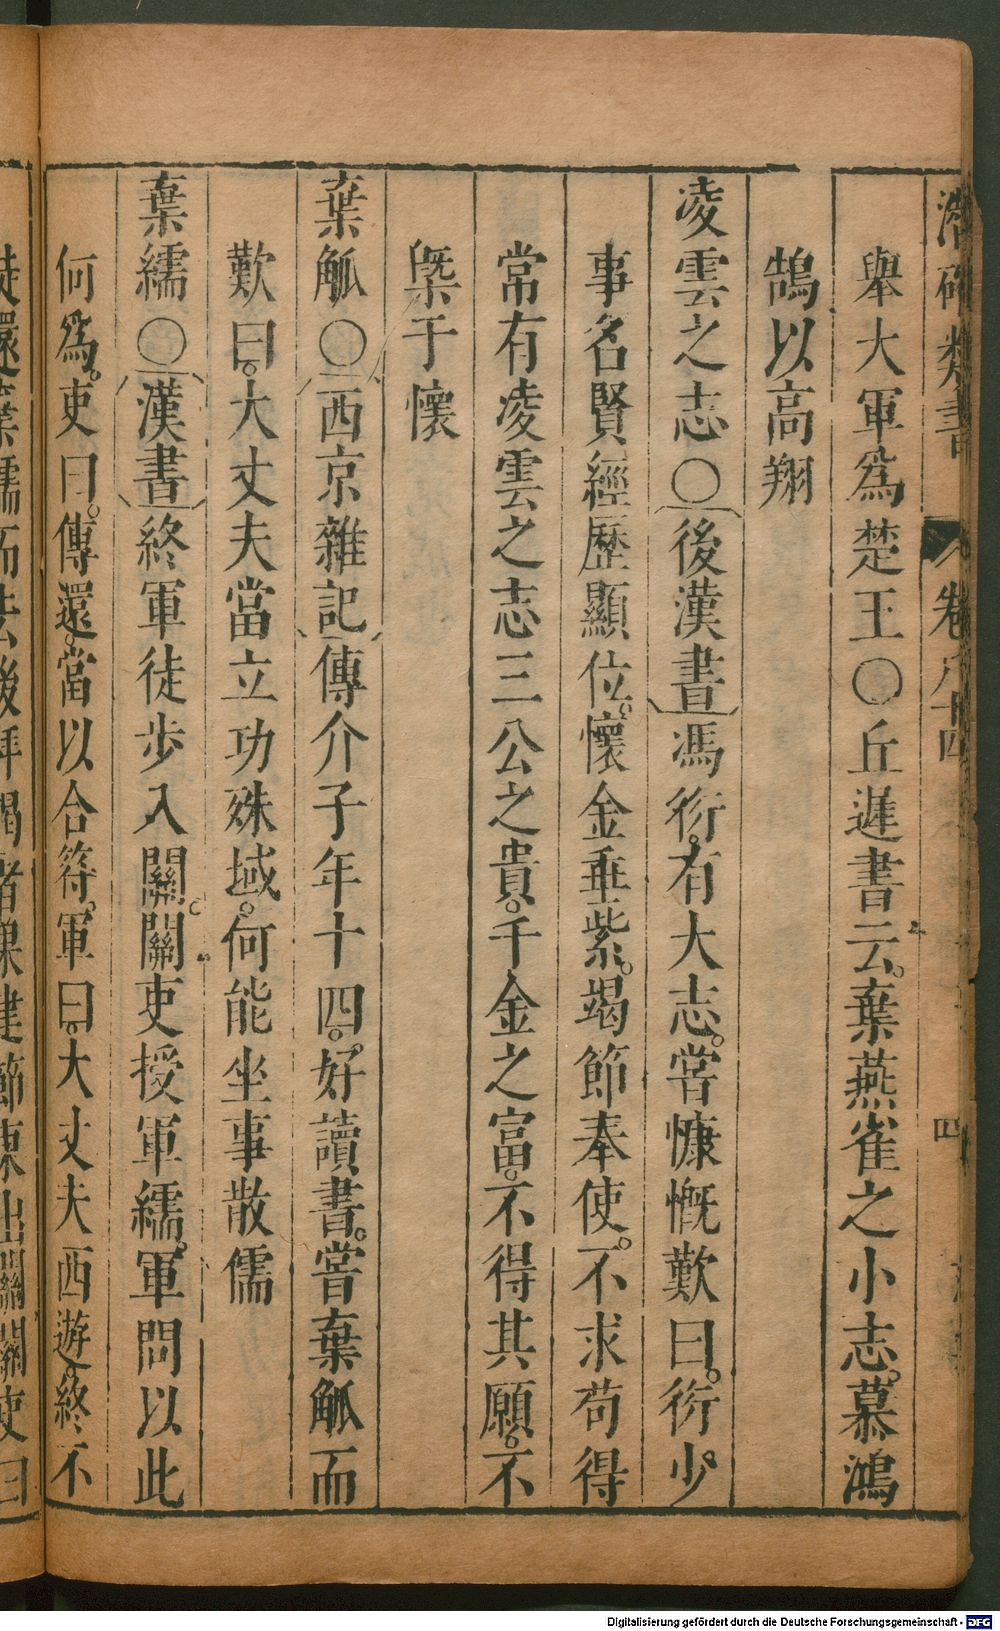 潛確類書 卷八十四 四
舉大軍爲楚王〇丘遲書云棄燕雀之小志慕鴻
鵠以高翔
凌雲之志〇後漢書馮衍有大志嘗慷慨歎曰衍少
事名賢經歷顯位懷金垂紫竭節奉使不求苟得
常有凌雲之志三公之貴千金之富不得其願不
槩于懷
棄觚〇西京雜記傳介子年十四好讀書嘗棄觚而
歎曰大丈夫當立功殊域何能坐事散儒
棄繻〇漢書終軍徒步入關關吏授軍繻軍問以此
何爲吏曰傳還當以合符軍曰大丈夫西遊終不
徒還棄繻而去後拜謁者巢建節東出關關吏曰
Digitalisierung gefördert durch die Deutsche Forschungsgemeinschaft - DFG